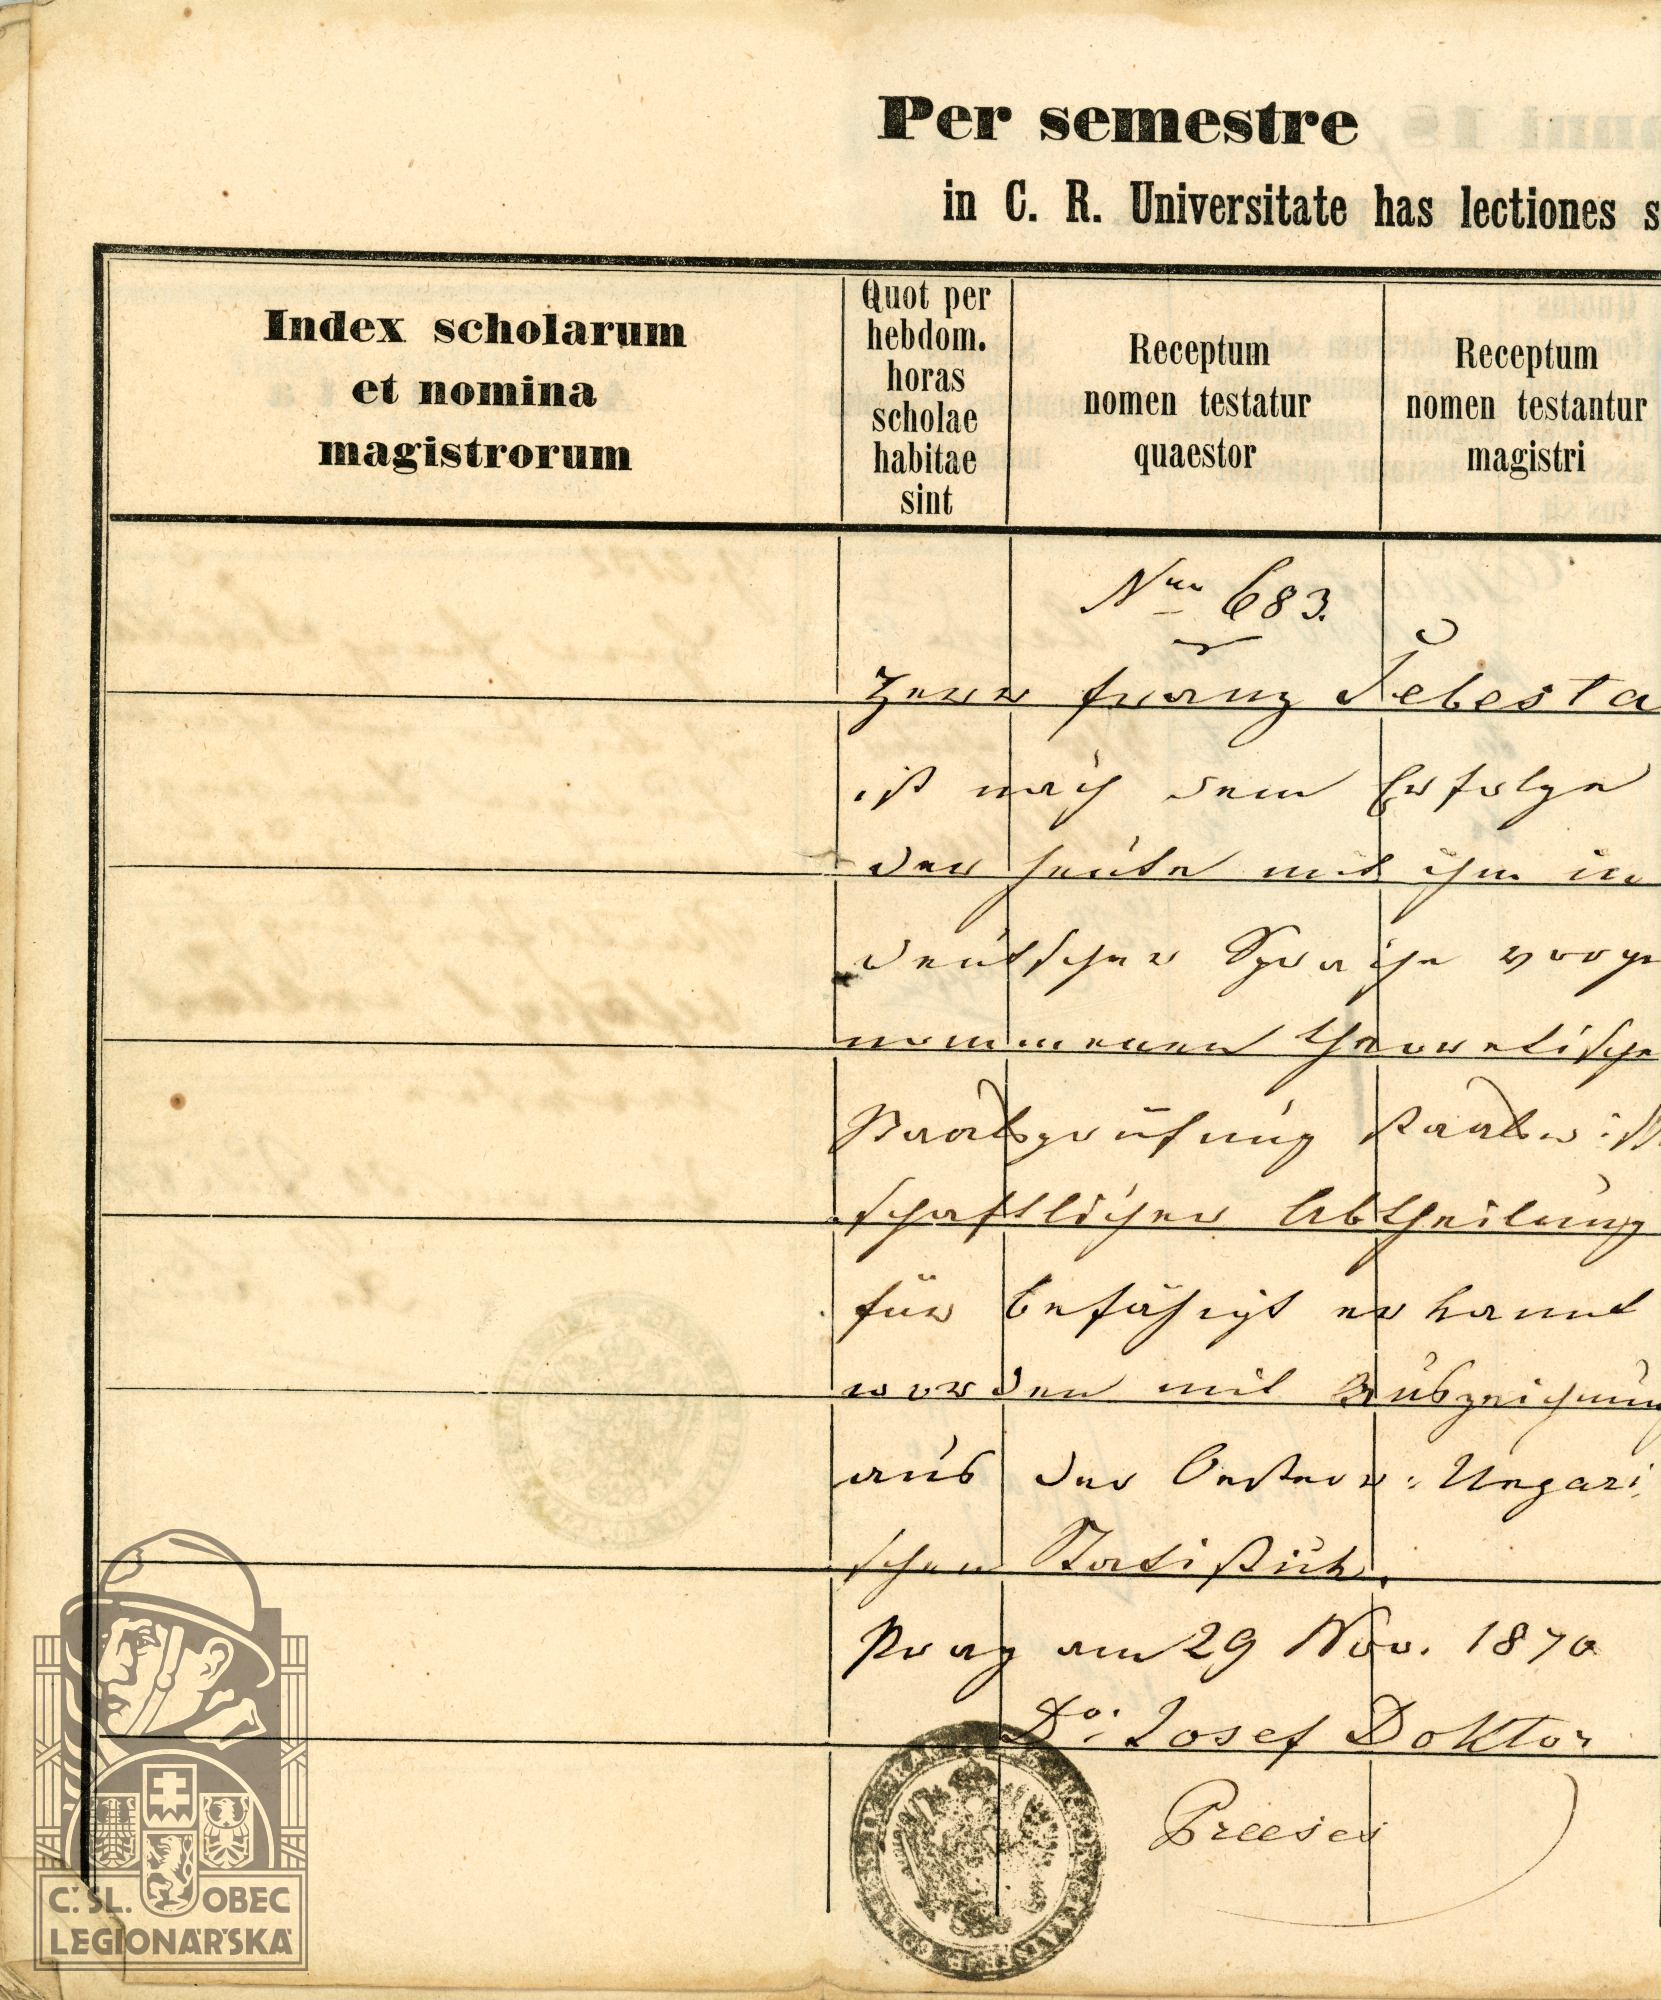 Per semestre
in C. R. Universitate has lectiones s
Index scholarum
et nomina
magistrorum
Quot per
hebdom.
horas
scholae
habitae
sint
Receptum
nomen testatur
quaestor
Receptum
nomen testantur
magistri
Nro 683.
Herr Franz Šebesta
ist nach dem Erfolge
der heute mit ihm in
deutscher Sprache vorge
nommenen theoretische
Staatsprüfung staatswiss
schaftlicher Abtheilung
für befähigt erkannt
worden mit Auszeichnung
aus der Oesterr: Ungari
schen Statistik.
Prag am 29 Nov. 1870
Dr. Josef Doktor
Praeses
Č.SL. OBEC
LEGIONÁŘSKÁ